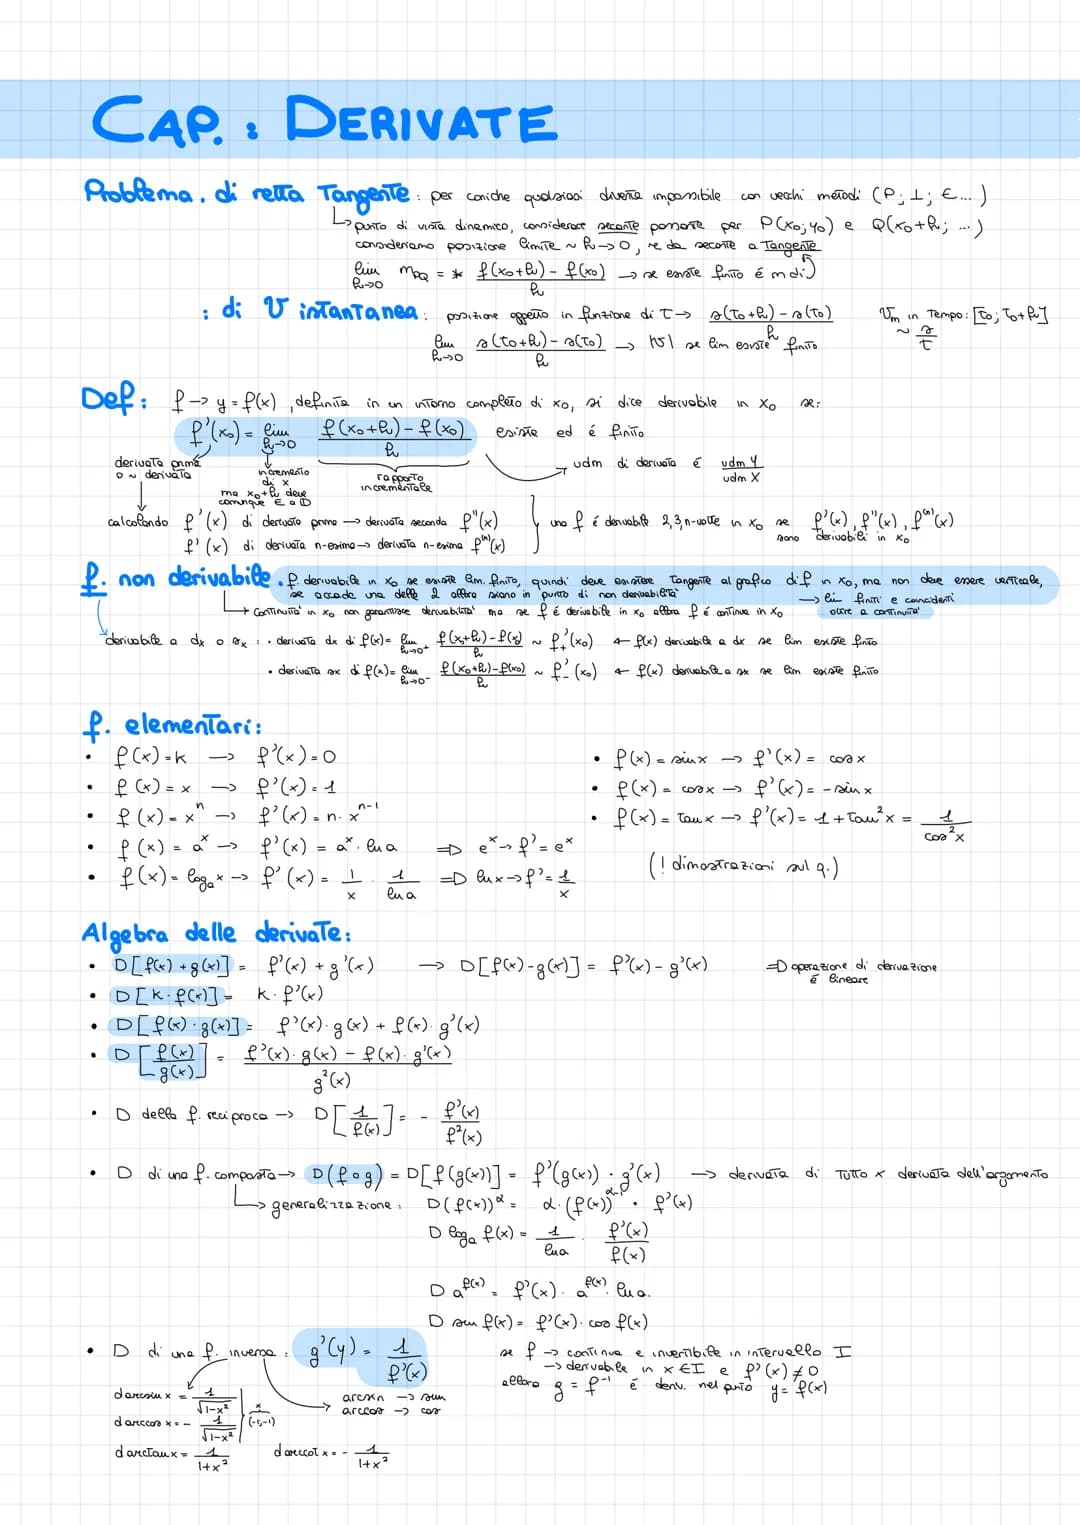 CAP. : DERIVATE
Problema. di retta Tangente : per coniche qualsiasi diventa impossibile con vecchi metodi (P; ⊥; ∈...)
↳ punto di vista dinamico, considerare secante passante per P(x₀; y₀) e Q(x₀+h; ...)
consideriamo posizione limite ~ h→0, se da secante a Tangente
lim h→0 m_PQ = * f(x₀+h) - f(x₀) / h → se esiste finito é m di
: di V istantanea : posizione oggetto in funzione di t → s(t₀+h) - s(t₀) / h
Vm in Tempo: [t₀; t₀+h] ~ s/t
lim h→0 s(t₀+h) - s(t₀) / h → |v| se lim esiste finito
Def : f → y = f(x), definita in un intorno completo di x₀, si dice derivabile in x₀ se:
f'(x₀) = lim h→0 f(x₀+h) - f(x₀) / h esiste ed é finito
derivata prima o ~ derivata
incremento di x
ma x₀+h deve comunque ∈ a D
rapporto incrementale
udm di derivata é udm y / udm x
calcolando f'(x) di derivata prima → derivata seconda f''(x)
f'(x) di derivata n-esima → derivata n-esima f⁽ⁿ⁾(x)
una f é derivabile 2,3,n-volte in x₀ se f'(x), f''(x), f⁽ⁿ⁾(x) sono derivabili in x₀
f. non derivabile . f. derivabile in x₀ se esiste lim. finito, quindi deve esistere Tangente al grafico di f in x₀, ma non deve essere verticale,
se accade una delle 2 allora siamo in punto di non derivabilità
→ lim finiti e coincidenti oltre a continuità
↳ Continuità in x₀ non garantisce derivabilità ma se f é derivabile in x₀ allora f é continua in x₀
derivabile a dx o sx : · derivata dx di f(x) = lim h→0⁺ f(x₀+h) - f(x₀) / h ~ f₊'(x₀) ← f(x) derivabile a dx se lim esiste finito
· derivata sx di f(x) = lim h→0⁻ f(x₀+h) - f(x₀) / h ~ f₋'(x₀) ← f(x) derivabile a sx se lim esiste finito
f. elementari:
• f(x) = k → f'(x) = 0
• f(x) = x → f'(x) = 1
• f(x) = xⁿ → f'(x) = n · xⁿ⁻¹
• f(x) = aˣ → f'(x) = aˣ · ln a ⇒ eˣ → f' = eˣ
• f(x) = logₐ x → f'(x) = 1/x · 1/ln a ⇒ ln x → f' = 1/x
• f(x) = sin x → f'(x) = cos x
• f(x) = cos x → f'(x) = - sin x
• f(x) = tan x → f'(x) = 1 + tan² x = 1/cos² x
(! dimostrazioni sul q.)
Algebra delle derivate:
• D[f(x) + g(x)] = f'(x) + g'(x) → D[f(x) - g(x)] = f'(x) - g'(x) ⇒ operazione di derivazione é lineare
• D[k · f(x)] = k · f'(x)
• D[f(x) · g(x)] = f'(x) · g(x) + f(x) · g'(x)
• D[f(x)/g(x)] = f'(x) · g(x) - f(x) · g'(x) / g²(x)
• D della f. reciproca → D[1/f(x)] = - f'(x)/f²(x)
• D di una f. composta → D(f∘g) = D[f(g(x))] = f'(g(x)) · g'(x) → derivata di Tutto x derivata dell'argomento
↳ generalizzazione : D(f(x))^α = α · (f(x))^(α-1) · f'(x)
D logₐ f(x) = 1/ln a · f'(x)/f(x)
D a^f(x) = f'(x) · a^f(x) · ln a.
D sin f(x) = f'(x) · cos f(x)
• D di una f. inversa : g'(y) = 1/f'(x)
se f → continua e invertibile in intervallo I
→ derivabile in x ∈ I e f'(x) ≠ 0
allora g = f⁻¹ é deriv. nel punto y = f(x)
d arcsin x = 1/√1-x²
d arccos x = - 1/√1-x²
x (-1;-1)
arcsin → sin
arccos → cos
d arctan x = 1/1+x²
d arccot x = - 1/1+x²